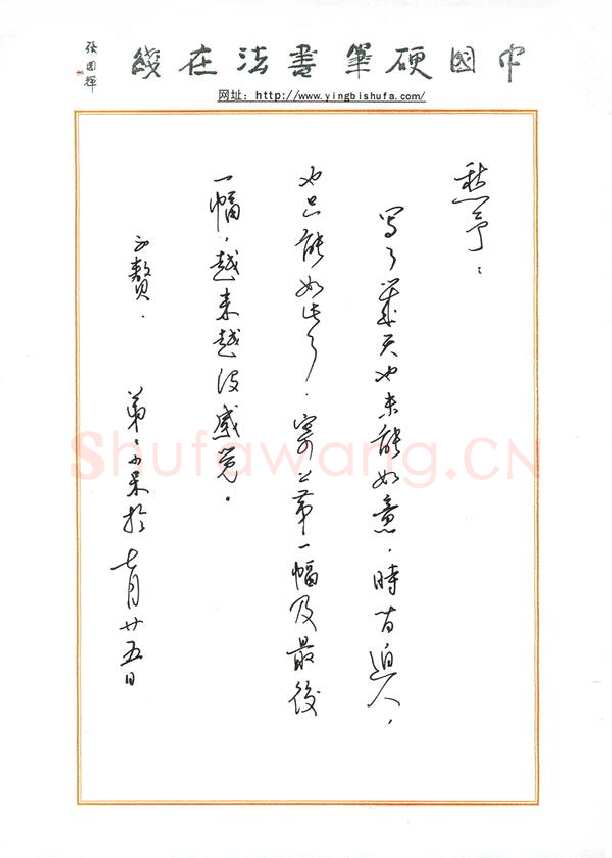 中國硬筆書法在綫
网址：http://www.yingbishufa.com/
愁予：
寫了幾天也未能如意，時間迫人，
也只能如此了。寄上第一幅及最後
一幅，越來越沒感覺。
不贅。 弟：小呆於七月廿五日
Shufawang.CN